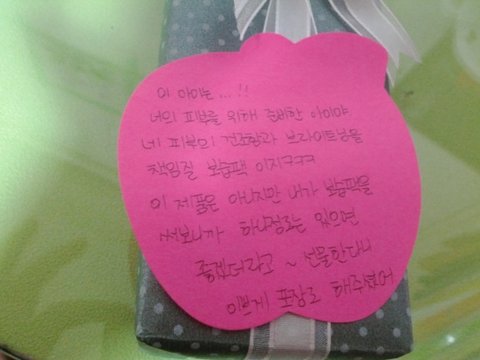 이 아이는...!!
너의 피부를 위해 준비한 아이야
네 피부의 건조함과 브라이트닝을
책임질 보습팩 이지ㅋㅋㅋ
이 제품은 아니지만 내가 보습팩을
써보니까 하나정도는 있으면
좋겠더라고 ~ 선물한다니
이쁘게 포장도 해주셨어